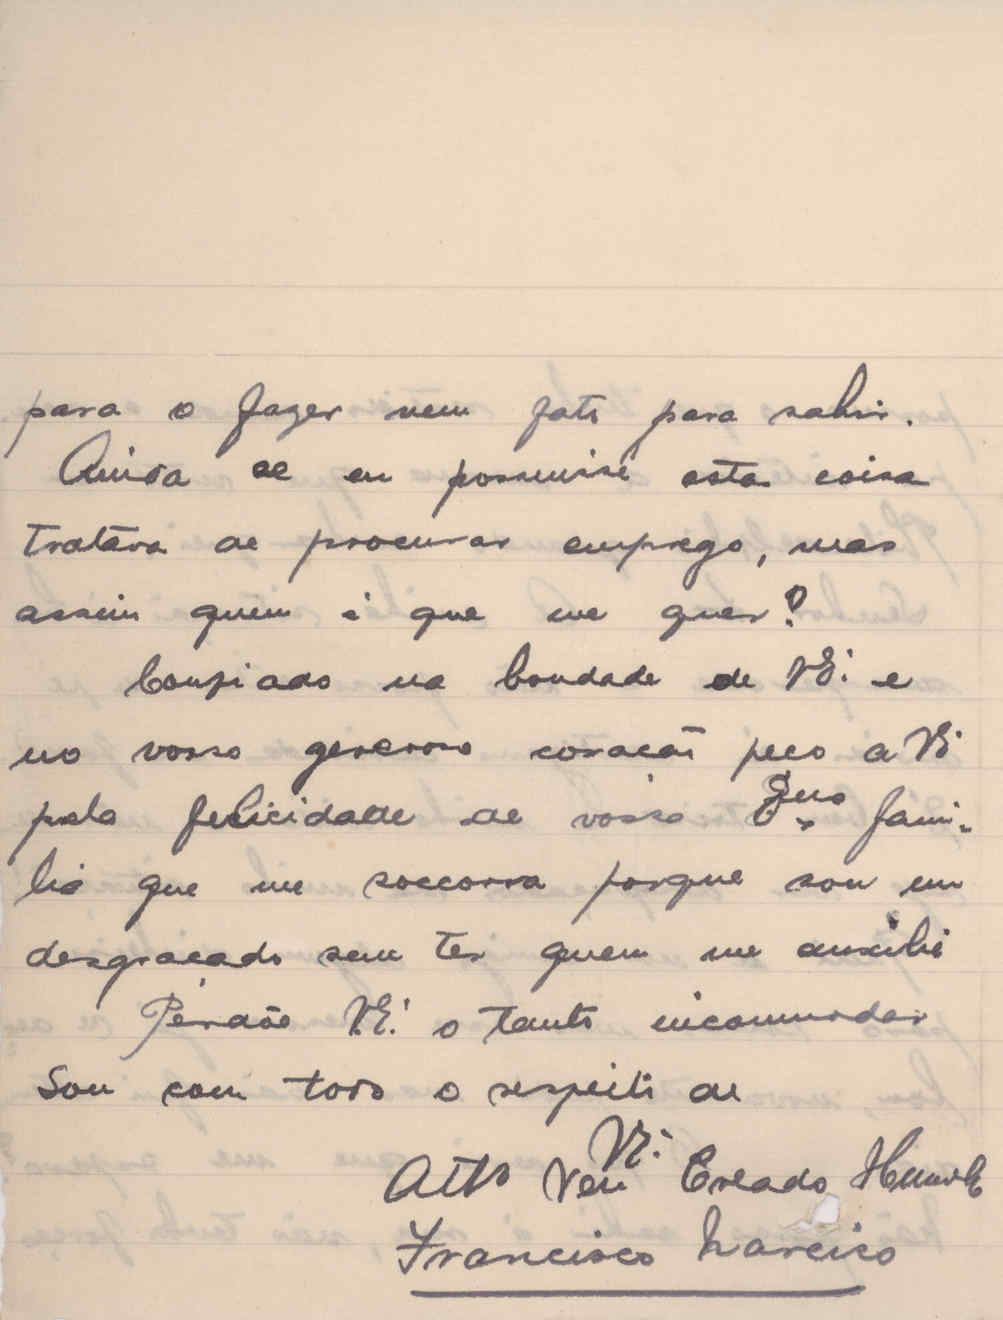 para o fazer nem fato para sahir.
Ainda se eu possuisse esta coisa
tratava de procurar emprego, mas
assim quem é que me quer?
Confiado na bondade de V.E. e
no vosso generoso coracão peco a V.E.
pela felicidade de vossa Exma fami-
lia que me soccorra porque sou um
desgraçado sem ter quem me auxilie
Perdõe V.E. o tanto incommodar
Sou com todo o respeito de
V.E.
Atto Ven Creado Humde
Francisco Narciso